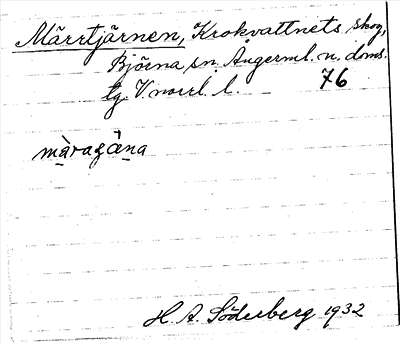 Märrtjärnen, Krokvattnets skog,
Björna sn. Ångerml. n. doms.
lg. V.norrl. l. 76
màragæ̂na
H. A. Söderberg 1932